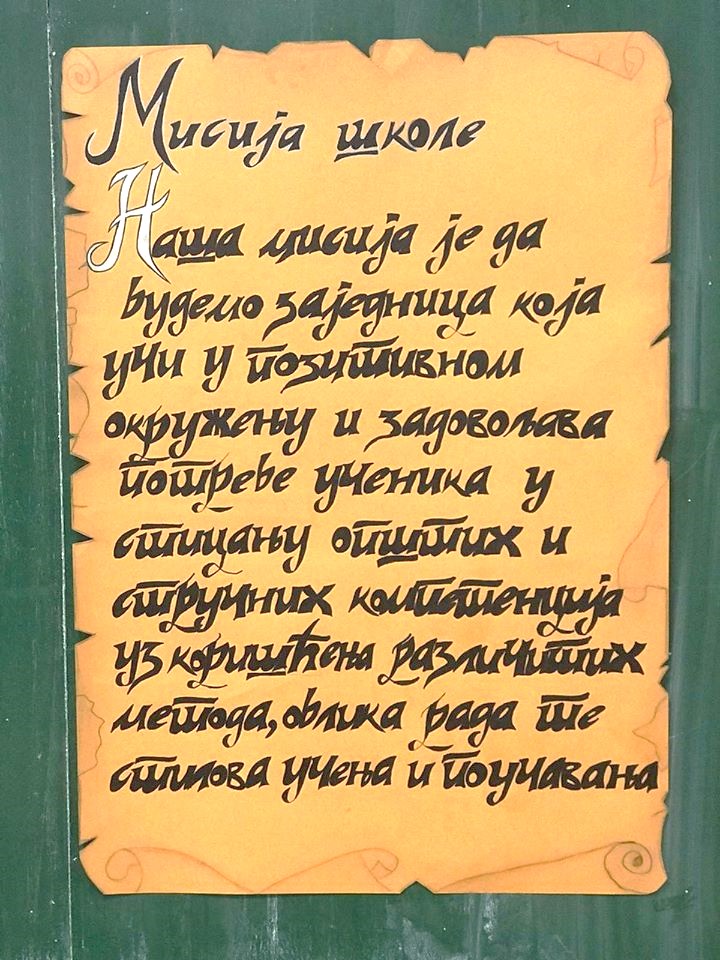 Мисија школе
Наша мисија је да
будемо заједница која
учи у позитивном
окружењу и задовољава
потребе ученика у
стицању општих и
стручних компетенција
уз коришћења различитих
метода, облика рада те
стилова учења и поучавања